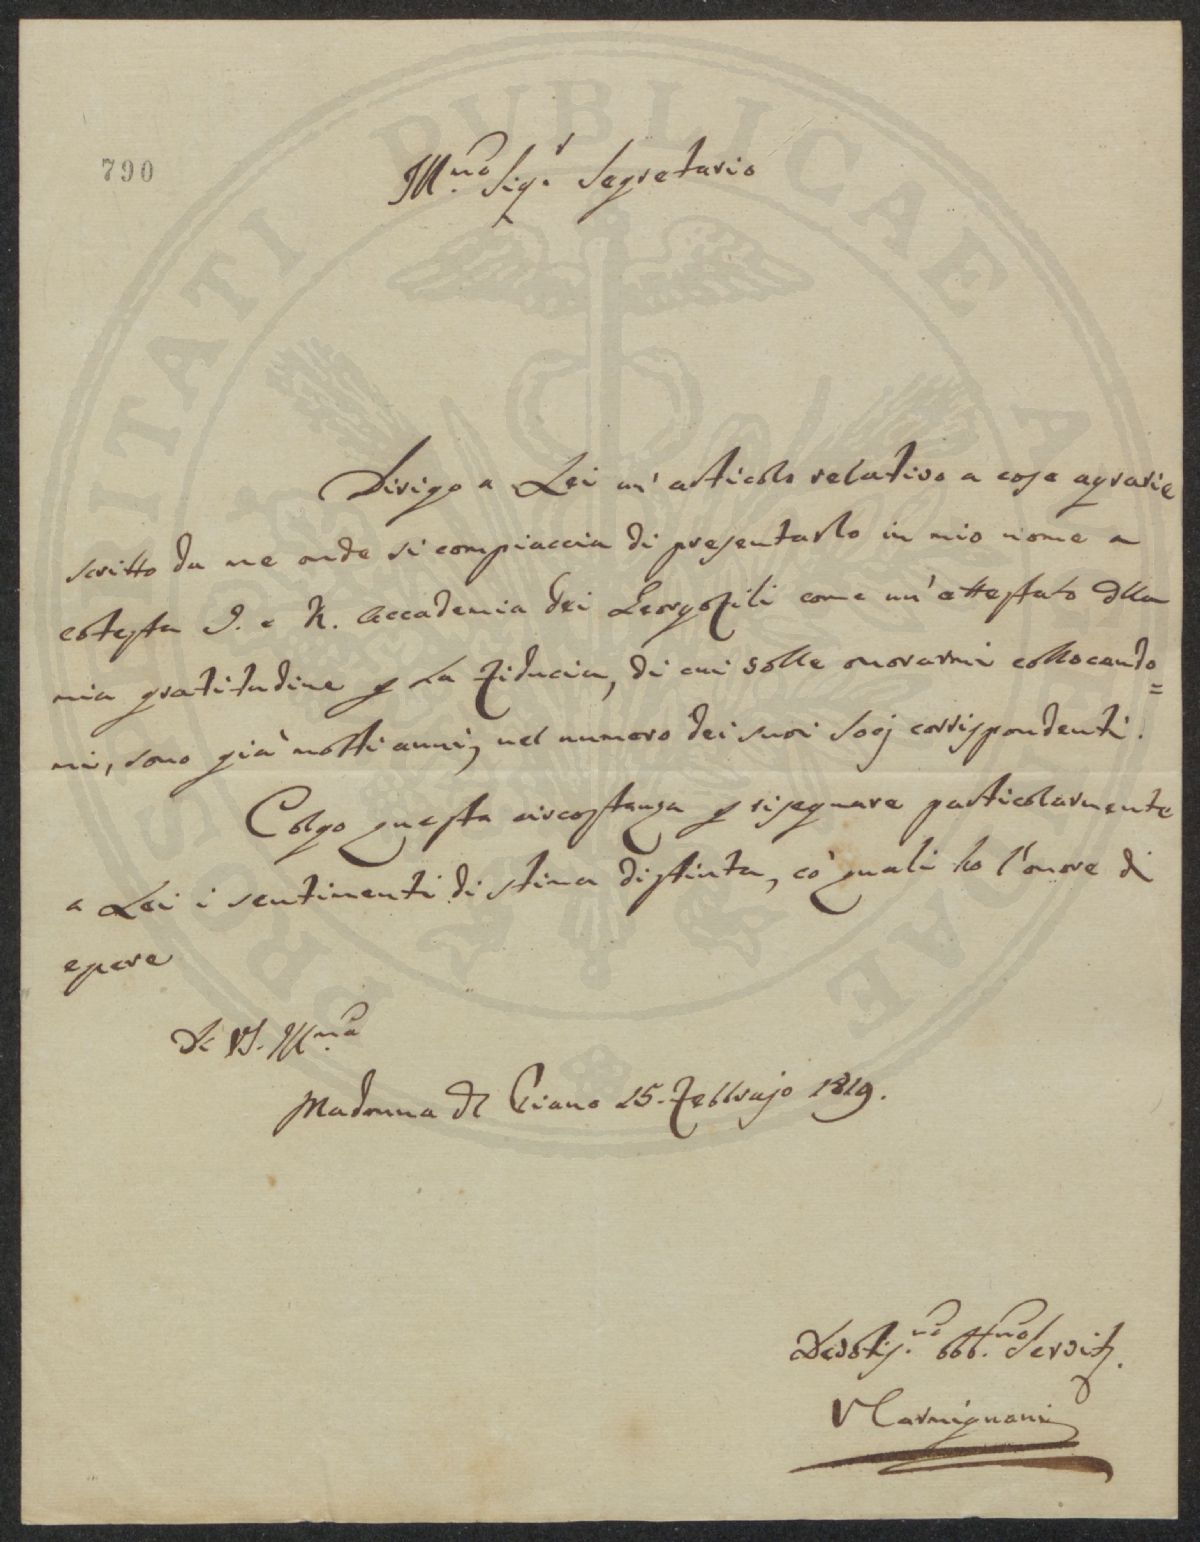 790
Ill.mo Sig.r Segretario
Dirigo a Lei un' articolo relativo a cose agrarie
scritto da me onde si compiaccia di presentarlo in mio nome a
cotesta I. e R. Accademia dei Georgofili come un' attestato della
mia gratitudine p la fiducia, di cui volle onorarmi collocando=
mi, sono già molti anni, nel numero dei suoi Socj corrispondenti.
Colgo questa circostanza p rassegnare particolarmente
a Lei i sentimenti di stima distinta, co' quali ho l'onore di
essere
Di VS. Ill.ma
Madonna del Piano 15. Febbrajo 1819.
Devotis.mo Obb.mo Servit.
V Carmignani
PROSPERITATI PUBLICAE AUGENDAE